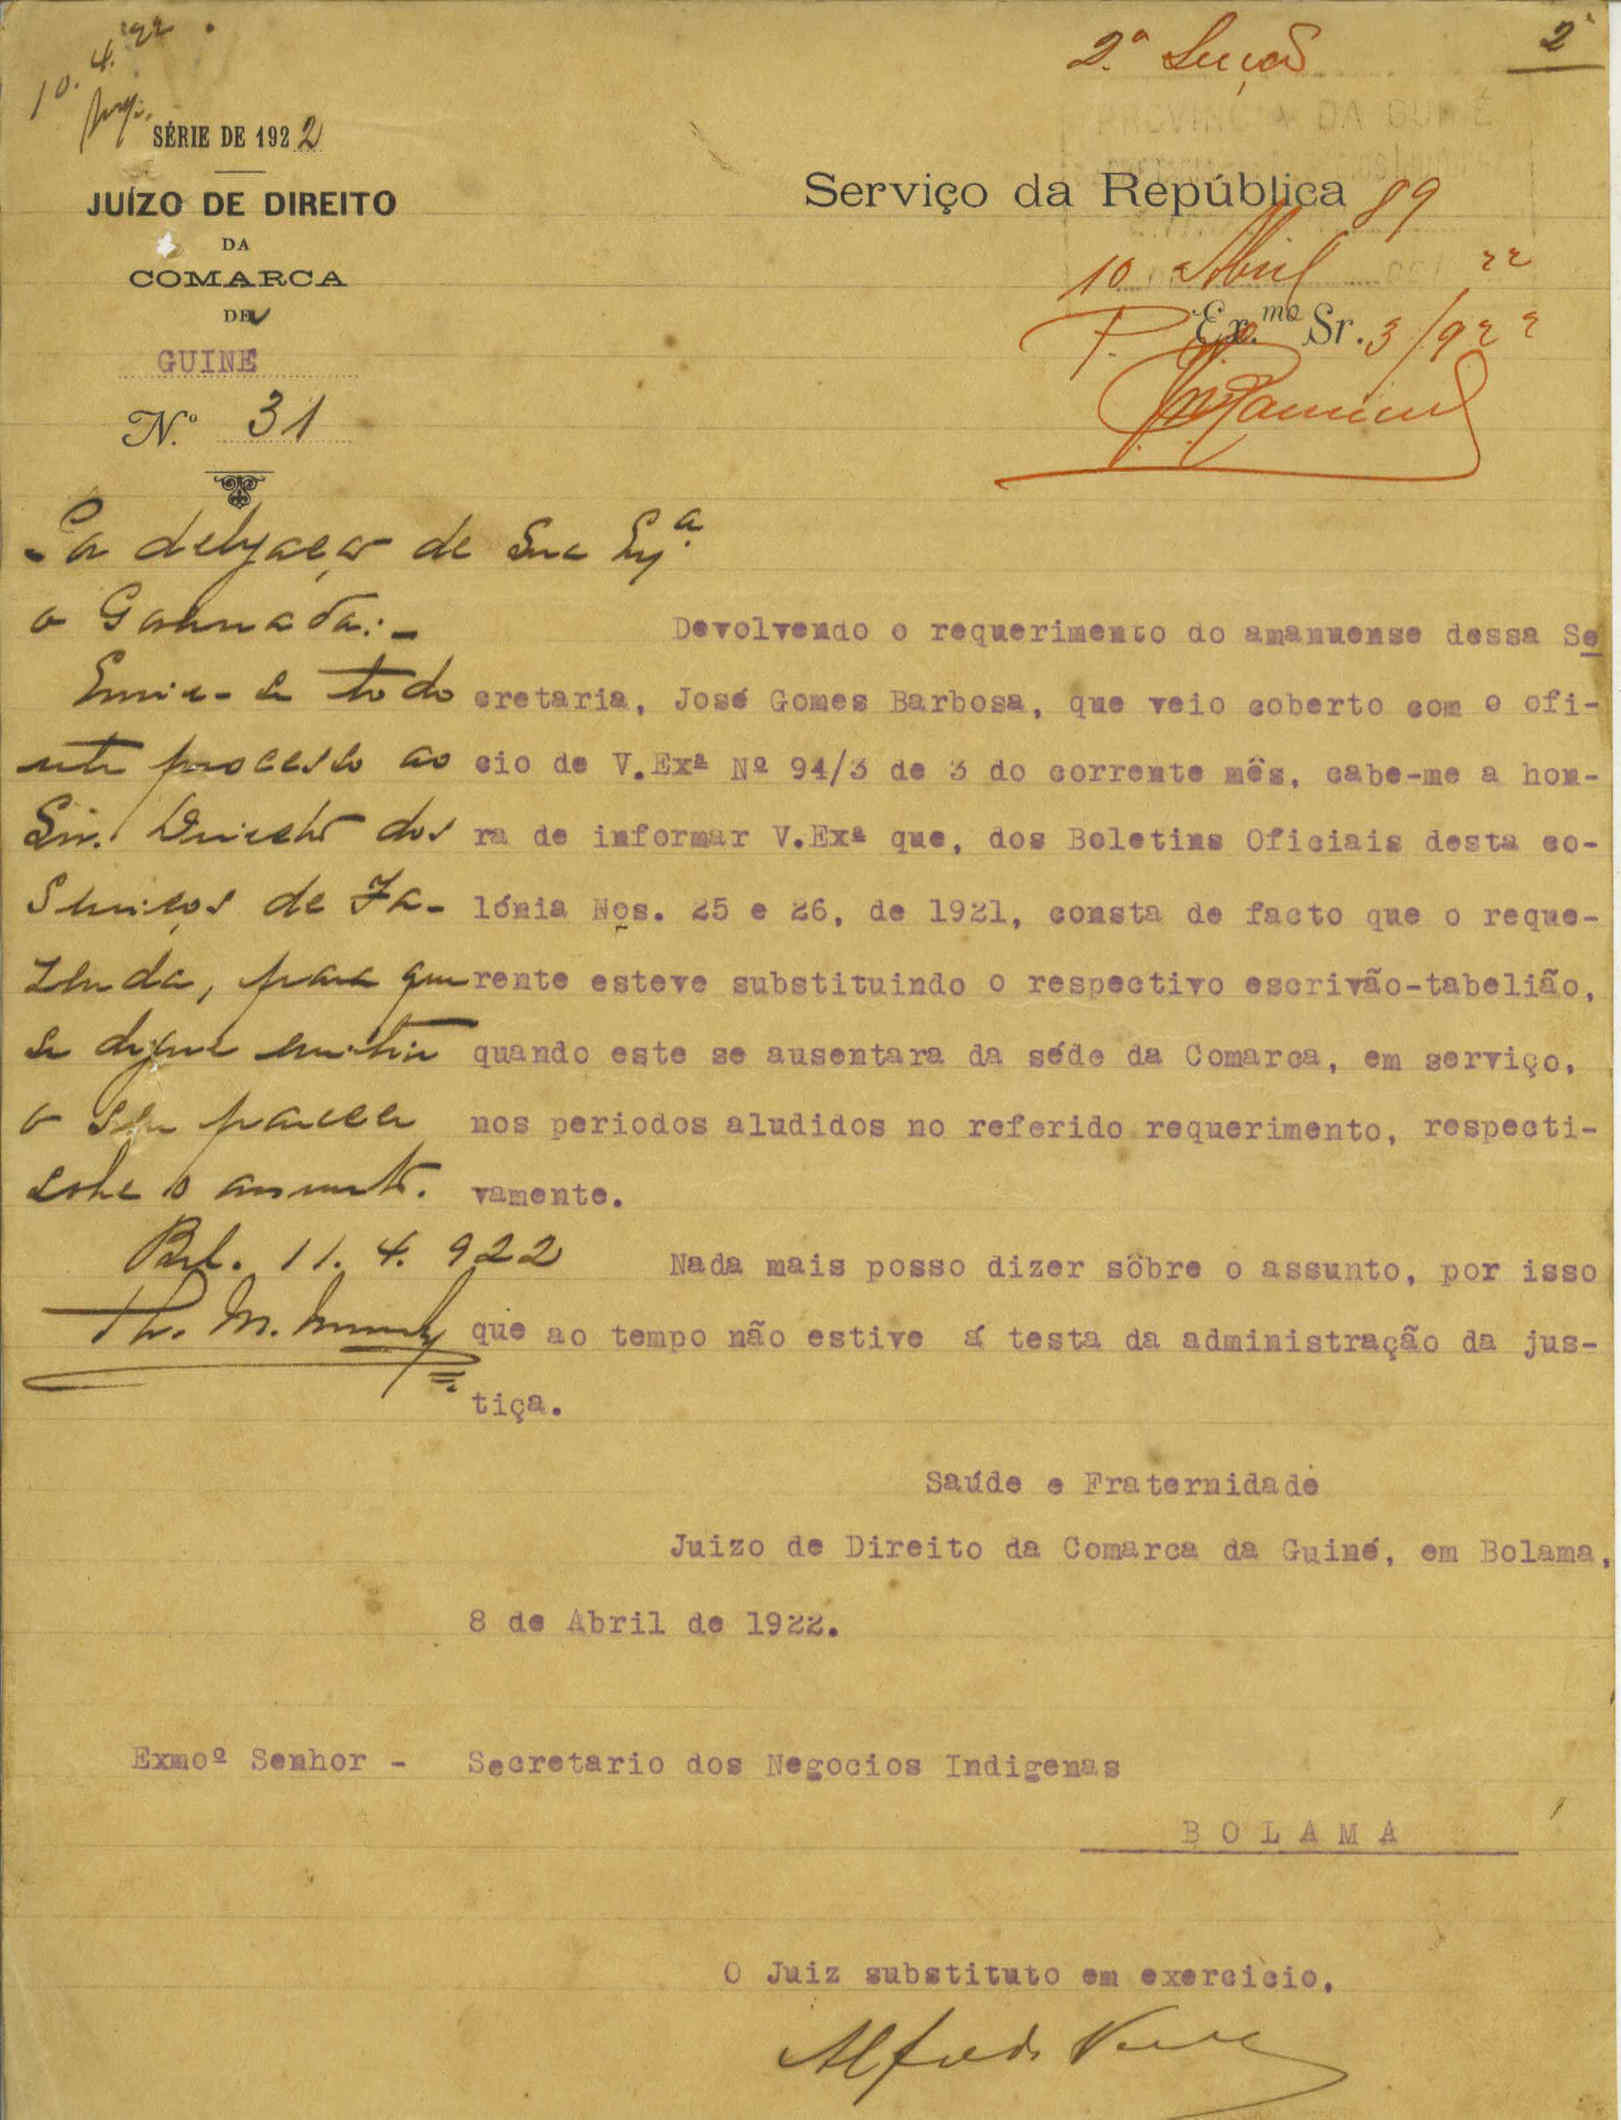 10.4.922
2.ª Secção
2
SÉRIE DE 1922
JUÍZO DE DIREITO
DA
COMARCA
DE
GUINE
N.º 31
PROVINCIA DA GUINÉ
Serviço da República
89
10 Abril 22
P. 3/922
Ex.mo Sr.
Por delegação de Sua Exª.
o Governador:-
Envie-se todo
este processo ao
Snr. Director dos
Serviços de Fa-
zenda, para que
se digne emitir
o seu parecer
sobre o assunto.
Bol. 11.4.922
Devolvendo o requerimento do amanuense dessa Se
cretaria, José Gomes Barbosa, que veio coberto com o ofi-
cio de V.Exª Nº 94/3 de 3 do corrente mês, cabe-me a hon-
ra de informar V.Exª que, dos Boletins Oficiais desta co-
lónia Nos. 25 e 26, de 1921, consta de facto que o reque-
rente esteve substituindo o respectivo escrivão-tabelião,
quando este se ausentara da séde da Comarca, em serviço,
nos periodos aludidos no referido requerimento, respecti-
vamente.
Nada mais posso dizer sôbre o assunto, por isso
que ao tempo não estive á testa da administração da jus-
tiça.
Saúde e Fraternidade
Juizo de Direito da Comarca da Guiné, em Bolama,
8 de Abril de 1922.
Exmoº Senhor - Secretario dos Negocios Indigenas
BOLAMA
O Juiz substituto em exercicio,
Alfredo